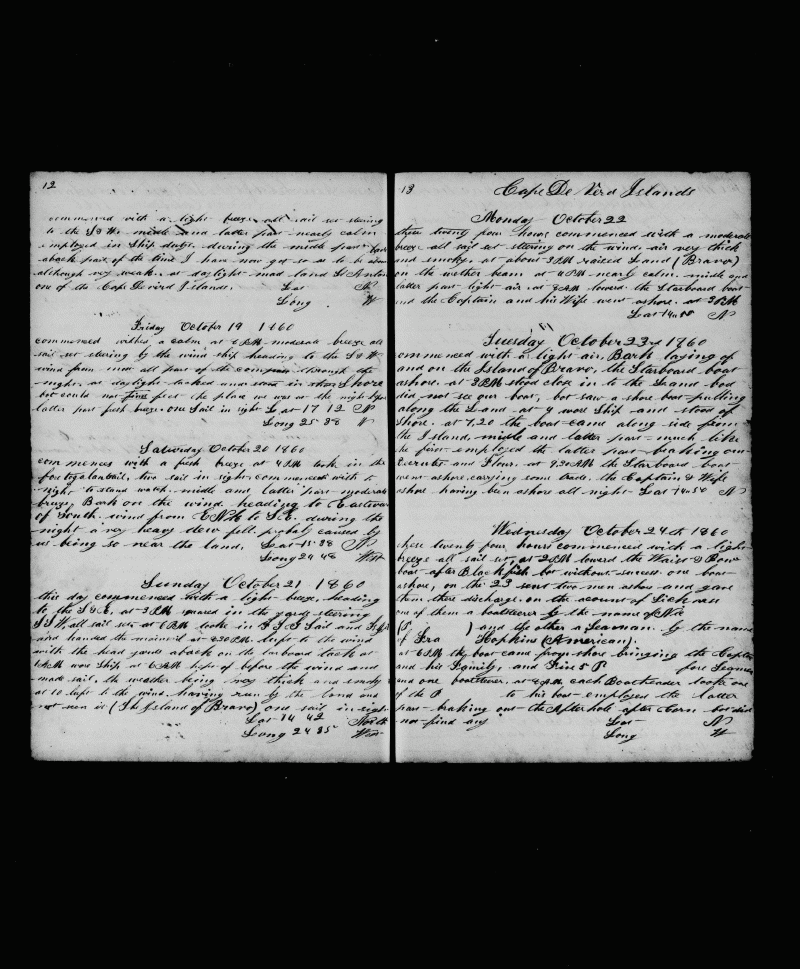 12
commenced with a light breeze all sail set steering
to the S & W. middle and latter part nearly calm
employed in Ship duty. during the middle part
aback part of the time I have now got so as to be
although very weak. at daylight made land St Anton
one of the Cape De vird Islands. Lat N
Long W
Friday October 19 1860
commenced withe a calm at 6 PM moderate breeze all
sail set steering by the wind ship heading to the S & W
wind from most all part of the compass through the
night. at daylight tacked in Shore
but could not find the place we was at the night before
latter part fresh breeze. one Sail in sight Lat 17 12 N
Long 25 38 W
Saturday October 20 1860
commences with a fresh breeze at 4 PM took in the
foretogalantsail, two sail in sight commenced with to
night to stand watch. middle and latter part moderate
breeze, Bark on the wind heading to Eastward
of South. wind from ENE to S.E. during the
night a very heavy dew fell. probaly caused by
us being so near the land. Lat 15.38 N
Long 24 48 West
Sunday October 21 1860
this day commenced with a light breeze, heading
to the S & E. at 3 PM squared in the yards steering
S S W, all sail set at 6 PM tooke in Sail and
and handed the mainsail at 4.30 PM. lufft to the wind
with the head yards aback on the larboard tack at
AM wore Ship at 6 AM kept of before the wind and
made sail. the weather being very thick and smoky
at 10 lufft to the wind. having run by the land and
not seen it (The Island of Bravo) one sail in sight
Lat 14 42 North
Long 24 35 West
13 Cape De Vird Islands
Monday October 22
these twenty four hours commenced with a moderate
breeze all sail set steering on the wind. air very thick
and smokey. at about 3 PM raised Land (Bravo)
on the wether beam at 4 PM nearly calm. middle and
latter part light air. at 8 AM lowerd the Starboard boat
and the Captain and his Wife went ashore. at 3 PM
Lat 14 58 N
Tuesday October 23rd 1860
commenced with a light air. Bark laying of
and on the Island of Bravo, the Starboard boat
ashore. at 3 PM stood close in to the Land bod
did not see our boat, bot saw a shore boat pulling
along the Land at 4 wore Ship and stood of
Shore. at 7.20 the boat came along side from
the Island, middle and latter part much like
the first employed the latter part braking out
and Flour. at 9.30 AM the Starboard boat
went ashore, carrying some trade. the Captain & Wife
ashore having been ashore all night. Lat 14 50 N
Wednesday October 24th 1860
these twenty four hours commenced with a light
breeze all sail set, at 2 PM lowerd the Waist & Bow
boat after Blackfish bot without success one boat
ashore, on the 23 sent two men ashore and gave
them there discharge. on the acount of Sickness
one of them a boatsteerer by the name of Nic
( ) and the other a Seaman. by the name
of Fra Hopkins (American).
at 6 PM the boat came from shore bringing the Captn
and his Family, and Five 5 P four Seamen
and one boatsteerer. at 8 PM each Boatheader took one
of the P to his boat employed the latter
part braking out the Afterhole after Corn bot did
not find any Lat N
Long W